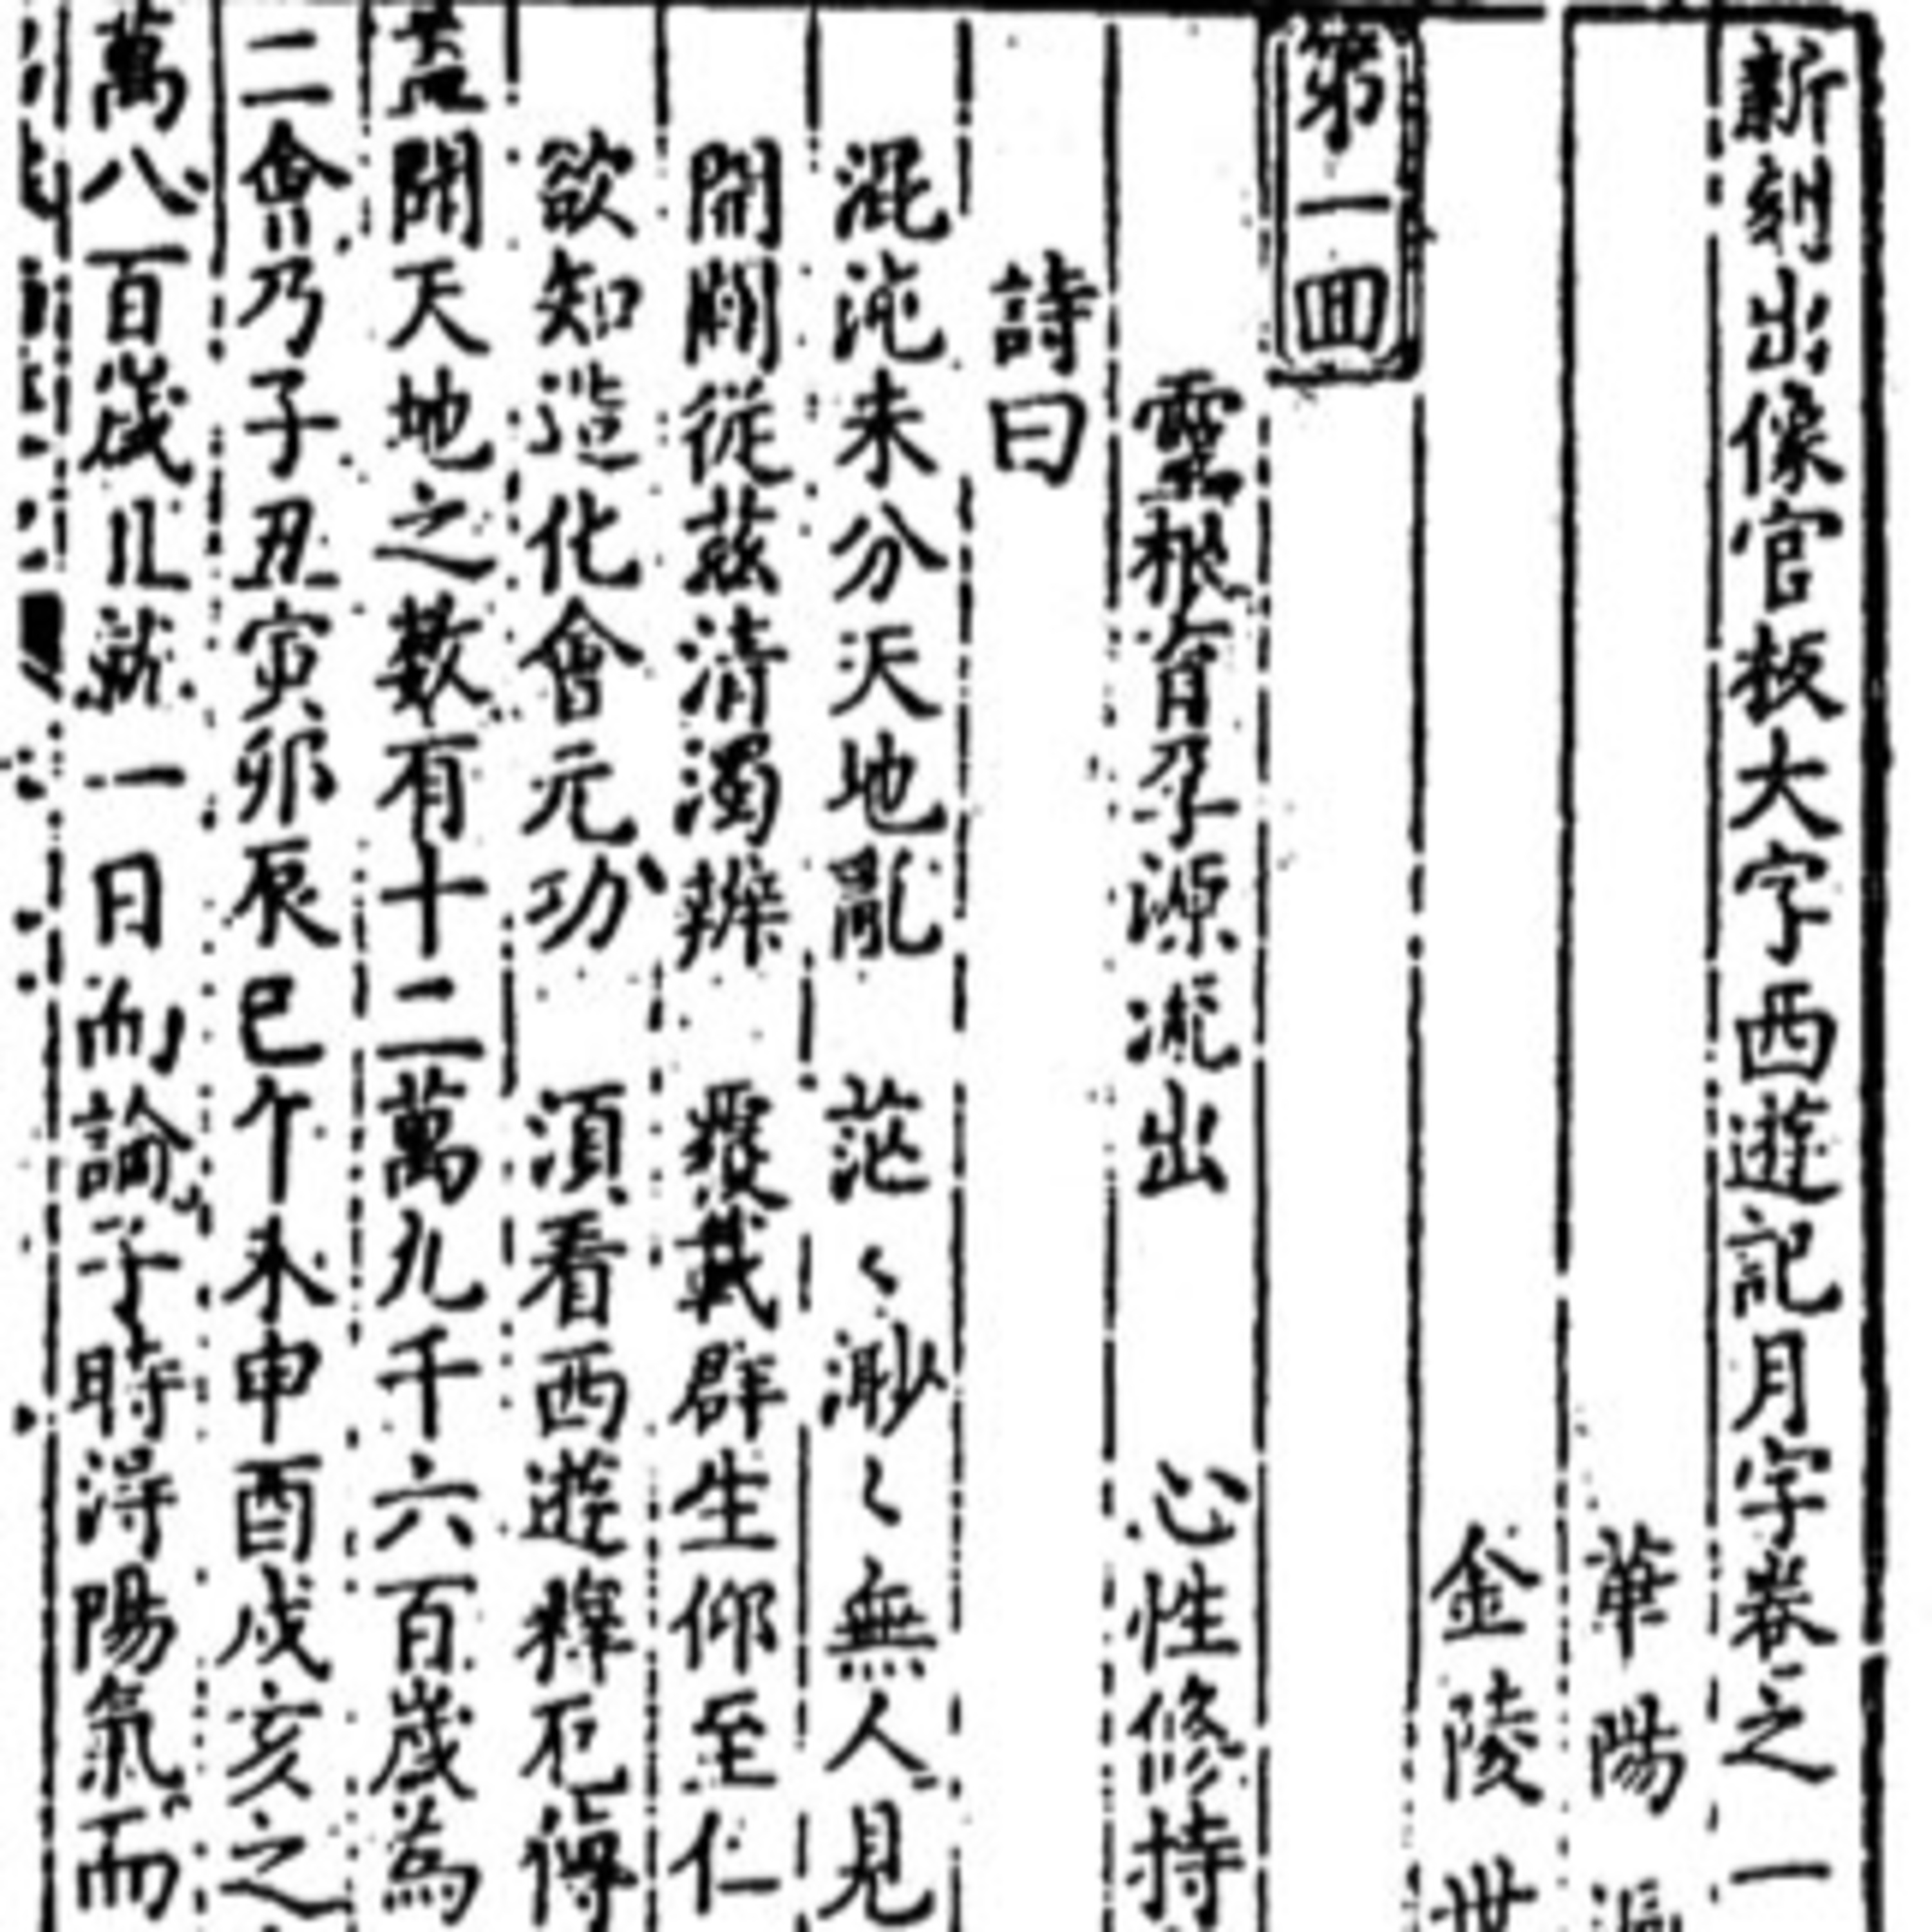 新刻出像官板大字西遊記月字卷之一
華陽洞
金陵世
第一回
靈根育孕源流出 心性修持
詩曰
混沌未分天地亂 茫〻渺〻無人見
開闢從茲清濁辨 覆載群生仰至仁
欲知造化會元功 須看西遊釋厄傳
蓋聞天地之數有十二萬九千六百歲為
二會乃子丑寅卯辰巳午未申酉戌亥之
萬八百歲且就一日而論子時得陽氣而